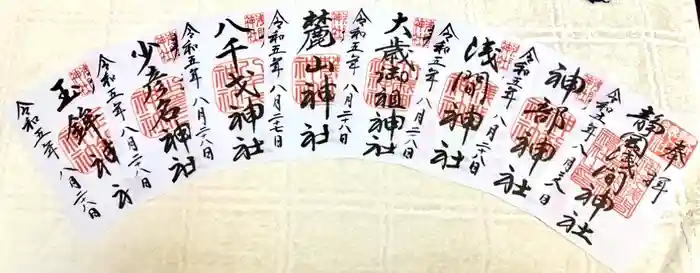 奉拝
静岡浅間神社
令和五年八月二八日
神部神社
令和五年八月二八日
浅間神社
令和五年八月二八日
大歳御祖神社
令和五年八月二八日
麓山神社
令和五年八月二七日
八千戈神社
令和五年八月二八日
少彦名神社
令和五年八月二八日
玉鉾神社
令和五年八月二八日